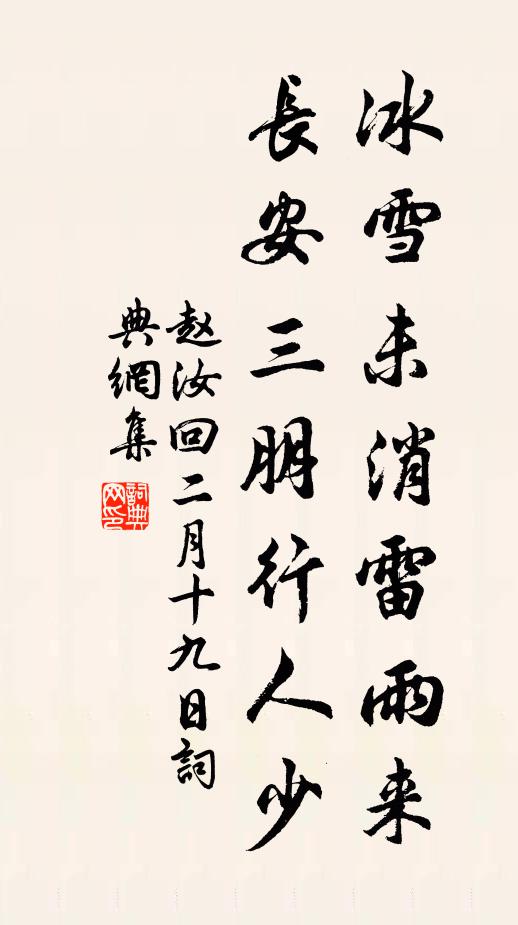 冰雪未消雷雨来
長安三朋行人少
赵汝回二月十九日詞
典網集
詞典
网印